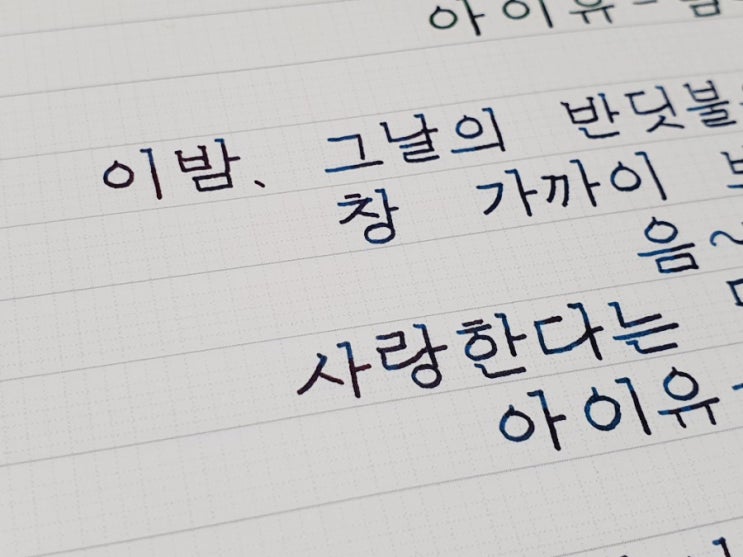 아이유-
이밤、 그날의 반딧불
창 가까이
음~
사랑한다는
아이유-